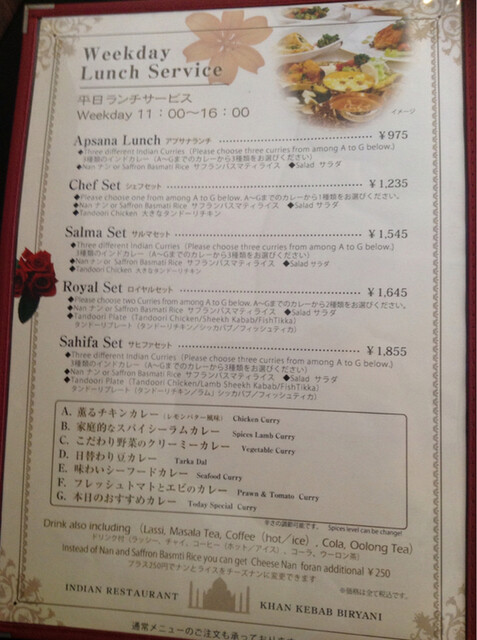 Weekday
Lunch Service
平日ランチサービス
Weekday 11:00～16:00
イメージ
Apsana Lunch アプサナランチ ¥975
◆Three different Indian Curries (Please choose three curries from among A to G below.)
3種類のインドカレー (A～Gまでのカレーから3種類をお選びください)
◆Nan ナン or Saffron Basmati Rice サフランバスマティライス ◆Salad サラダ
Chef Set シェフセット ¥1,235
◆Please choose one from among A to G below. A～Gまでのカレーから1種類をお選びください。
◆Nan ナン or Saffron Basmati Rice サフランバスマティライス ◆Salad サラダ
◆Tandoori Chicken 大きなタンドーリチキン
Salma Set サルマセット ¥1,545
◆Three different Indian Curries (Please choose three curries from among A to G below.)
3種類のインドカレー (A～Gまでのカレーから3種類をお選びください)
◆Nan ナン or Saffron Basmati Rice サフランバスマティライス ◆Salad サラダ
◆Tandoori Chicken 大きなタンドーリチキン
Royal Set ロイヤルセット ¥1,645
◆Please choose two Curries from among A to G below. A～Gまでのカレーから2種類をお選びください。
◆Nan ナン or Saffron Basmati Rice サフランバスマティライス ◆Salad サラダ
◆Tandoori Plate (Tandoori Chicken/Sheekh Kabab/FishTikka)
タンドーリプレート (タンドーリチキン/シッカバブ/フィッシュティカ)
Sahifa Set サヒファセット ¥1,855
◆Three different Indian Curries (Please choose three curries from among A to G below.)
3種類のインドカレー (A～Gまでのカレーから3種類をお選びください)
◆Nan ナン or Saffron Basmati Rice サフランバスマティライス ◆Salad サラダ
◆Tandoori Plate (Tandoori Chicken/Lamb Sheekh Kabab/FishTikka)
タンドーリプレート (タンドーリチキン/ラム シッカバブ/フィッシュティカ)
A. 薫るチキンカレー (レモンバター風味) Chicken Curry
B. 家庭的なスパイシーラムカレー Spices Lamb Curry
C. こだわり野菜のクリーミーカレー Vegetable Curry
D. 日替わり豆カレー Tarka Dal
E. 味わいシーフードカレー Seafood Curry
F. フレッシュトマトとエビのカレー Prawn & Tomato Curry
G. 本日のおすすめカレー Today Special Curry
※辛さの調節可能です。 Spices level can be change!
Drink also including (Lassi, Masala Tea, Coffee (hot/ice), Cola, Oolong Tea)
ドリンク付 (ラッシー、チャイ、コーヒー (ホット/アイス)、コーラ、ウーロン茶)
Instead of Nan and Saffron Basmti Rice you can get Cheese Nan foran additional ¥250
プラス250円でナンとライスをチーズナンに変更できます
※価格は全て税込です。
INDIAN RESTAURANT KHAN KEBAB BIRYANI
通常メニューのご注文も承っており